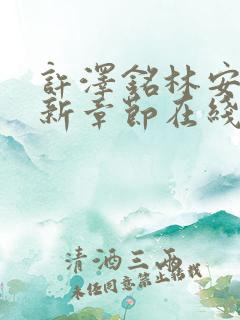 許澤銘林安
新章節在綫
清酒三兩
未经同意禁止转载